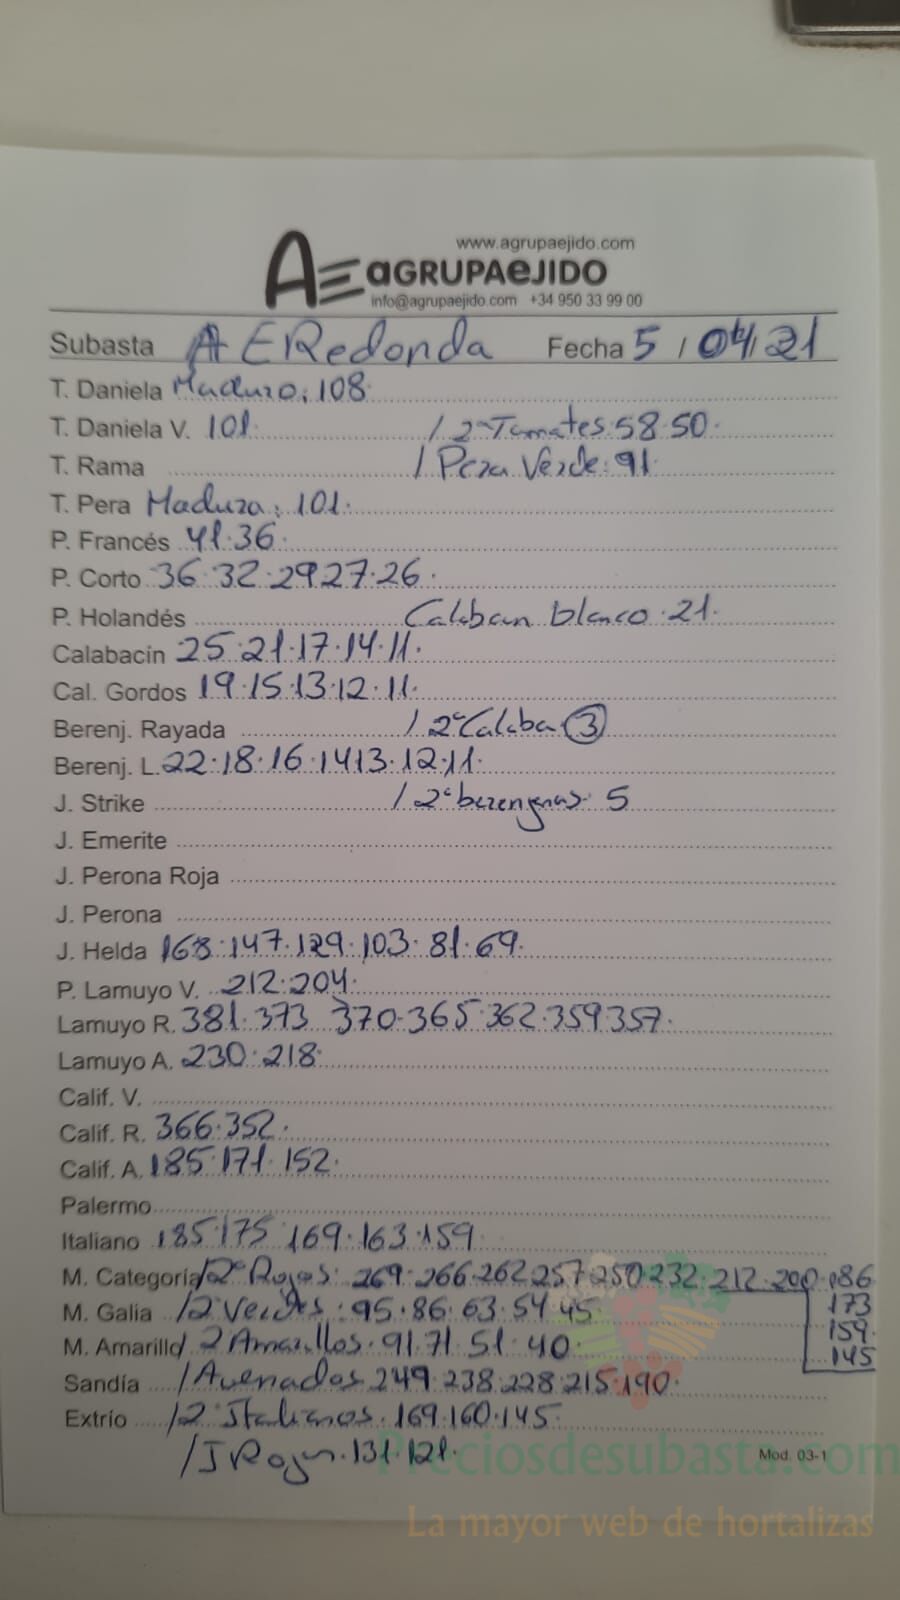 www.agrupaejido.com
AE aGRUPAeJIDO
info@agrupaejido.com +34 950 33 99 00
Subasta AE Redonda Fecha 5 / 04/21
T. Daniela Maduro: 108.
T. Daniela V. 101. / 2ª Tomates 58.50.
T. Rama / Pera Verde: 91.
T. Pera Madura: 101.
P. Francés 41.36.
P. Corto 36.32.29.27.26.
P. Holandés Calaban blanco.21.
Calabacín 25.21.17.14.11.
Cal. Gordos 19.15.13.12.11.
Berenj. Rayada / 2ª Calaba 3
Berenj. L. 22.18.16.14.13.12.11.
J. Strike / 2ª berengenas. 5
J. Emerite
J. Perona Roja
J. Perona
J. Helda 168.147.129.103.81.69.
P. Lamuyo V. 212.204.
Lamuyo R. 381.373 370.365.362.359.357.
Lamuyo A. 230.218.
Calif. V.
Calif. R. 366.352.
Calif. A. 185.171.152.
Palermo
Italiano 185.175 169.163.159.
M. Categoría /2ª Rojos: 269.266.262.257.250.232.212.200.186
M. Galia /2 Verdes: 95.86.63.54.45. 173
M. Amarillo 2 Amarillos.91.71.51.40 159.
145
Sandía /Asenados 249.238.228.215.190.
Extrío /2 Italianos.169.160.145.
/J Roja.131.121.
Mod. 03-1
Preciosdesubasta.com
La mayor web de hortalizas